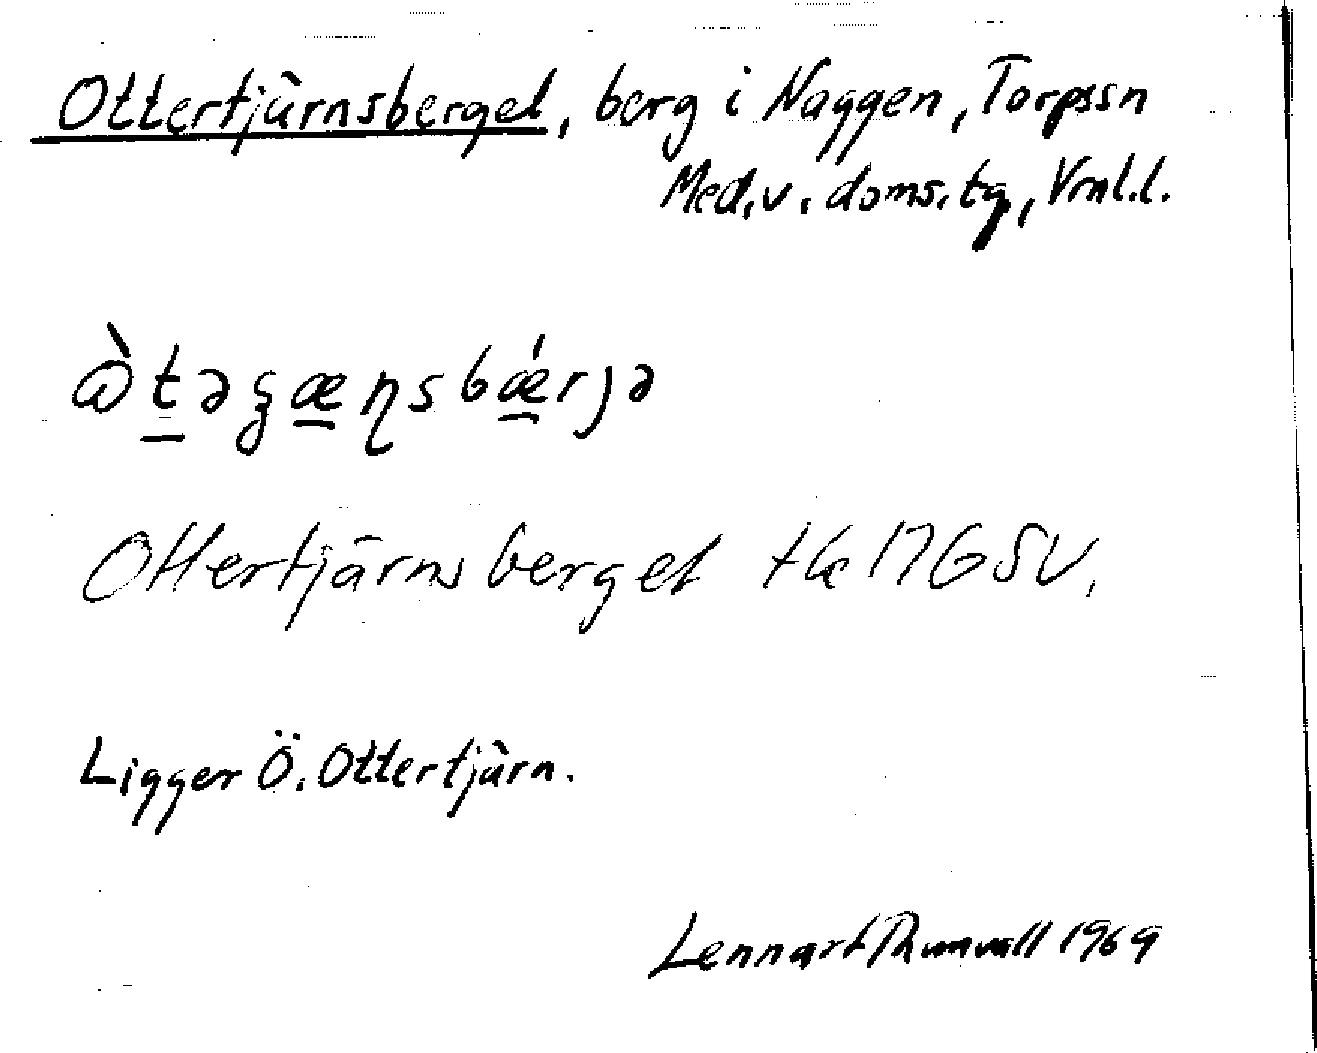 Ottertjärnsberget, berg i Naggen, Torpssn
Med.v. doms. tg, Vrnl.l.
Ottertjärnsberget tk 17G SV.
Ligger Ö. Ottertjärn.
Lennart Thunvall 1969